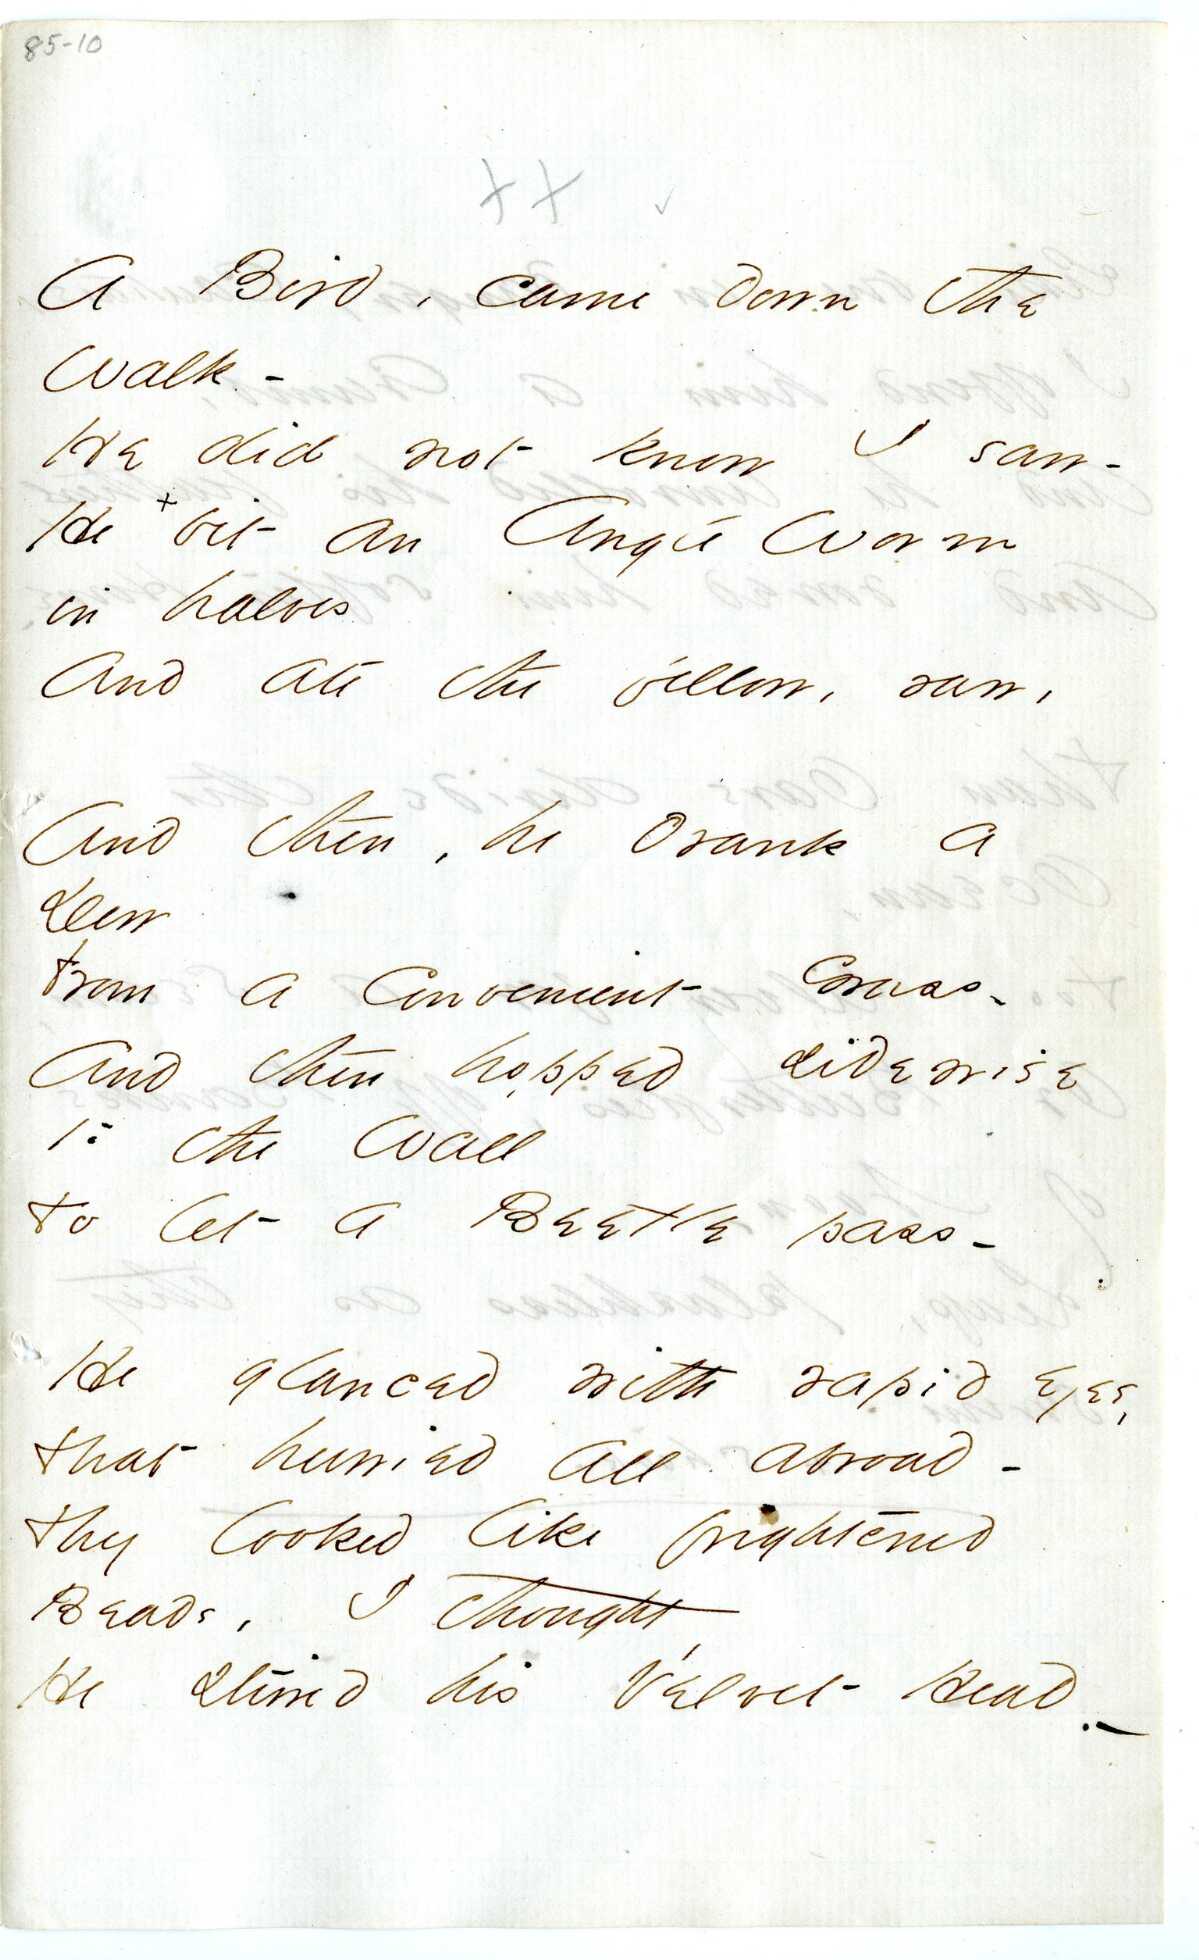 85-10
A Bird, came down the
Walk -
He did not know I saw -
He + bit an Angle Worm
in halves
And ate the fellow, raw,
And then, he drank a
Dew
From a Convenient Grass -
And then hopped sidewise
to the Wall
To let a Beetle pass -
He glanced with rapid eyes,
That hurried all abroad -
They looked like frightened
Beads, I thought,
He stirred his Velvet Head. -